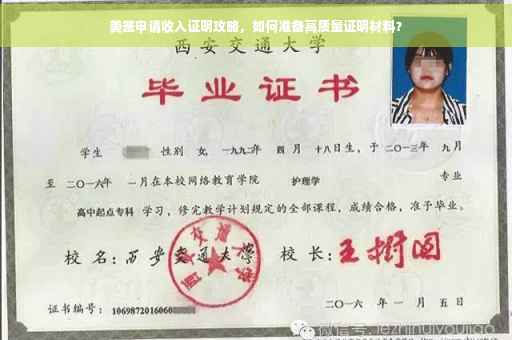 美签申请收入证明攻略，如何准备高质量证明材料？
西安交通大学
毕业证书
学生 性别 女，一九九二年 四月 十八日生，于二〇一三年 九月
至 二〇一六年 一月在本校网络教育学院 护理学 专业
高中起点专科 学习，修完教学计划规定的全部课程，成绩合格，准予毕业。
校名：西安交通大学 校长：王树国
西安交通大学
证书编号：1069872016060
二〇一六年一月五日
微信号: jezhihuiyoujiao